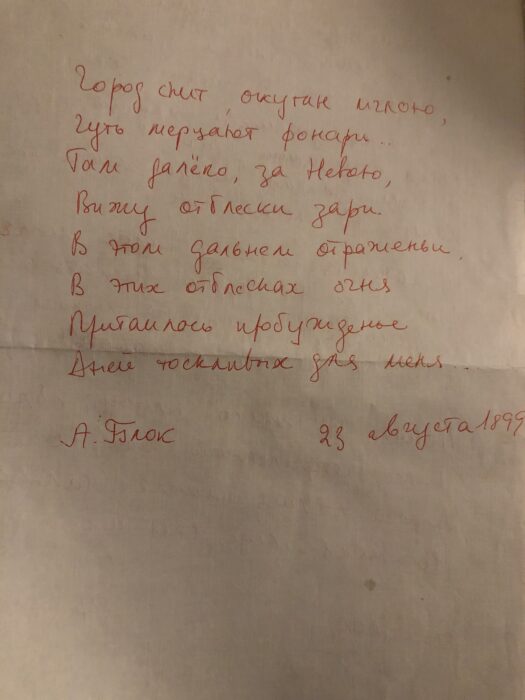 Город спит, окутан мглою,
Чуть мерцают фонари..
Там далёко, за Невою,
Вижу отблески зари.
В этом дальнем отраженьи.
В этих отблесках огня
Притаилось пробужденье
Дней тоскливых для меня.
А. Блок 23 августа 1899